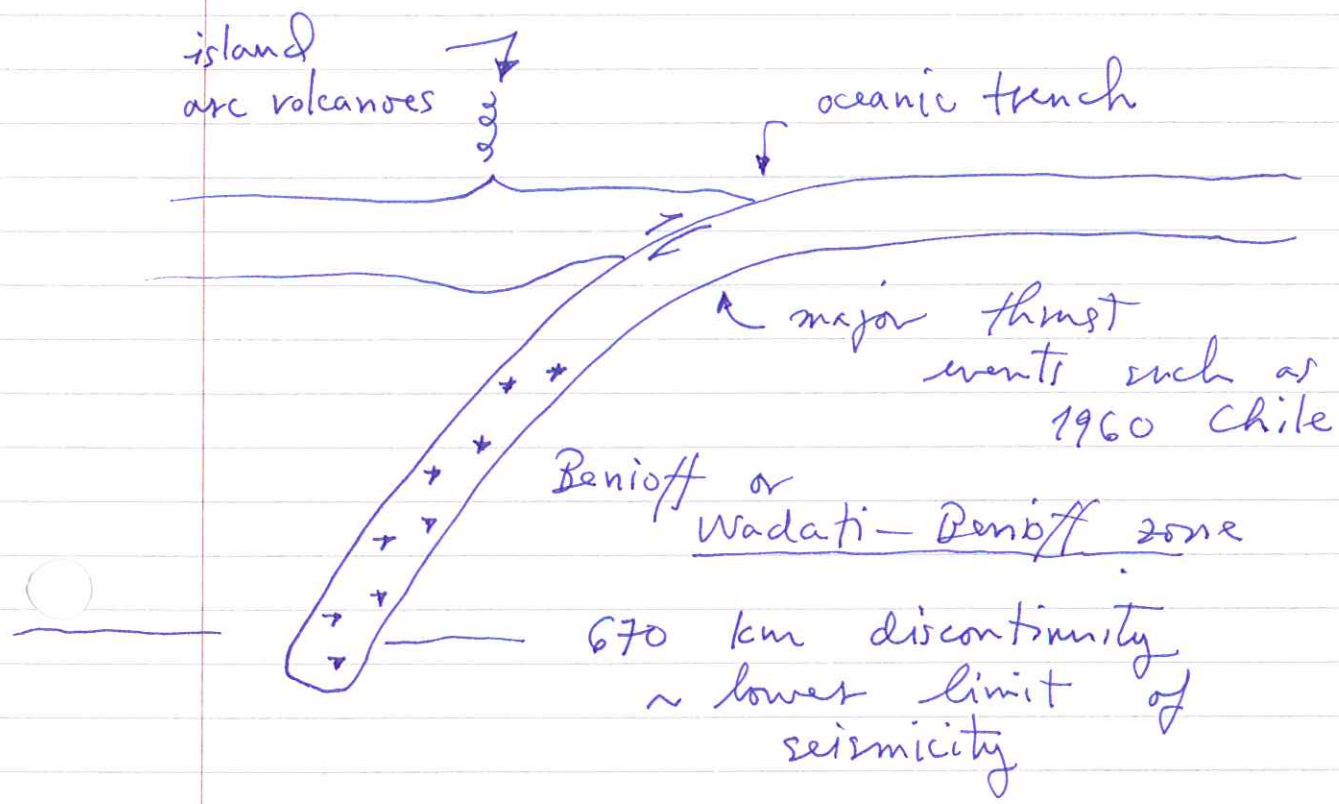 island
arc volcanoes
oceanic trench
major thrust
events such as
1960 Chile
Benioff or
Wadati – Benioff zone
670 km discontinuity
~ lower limit of
seismicity